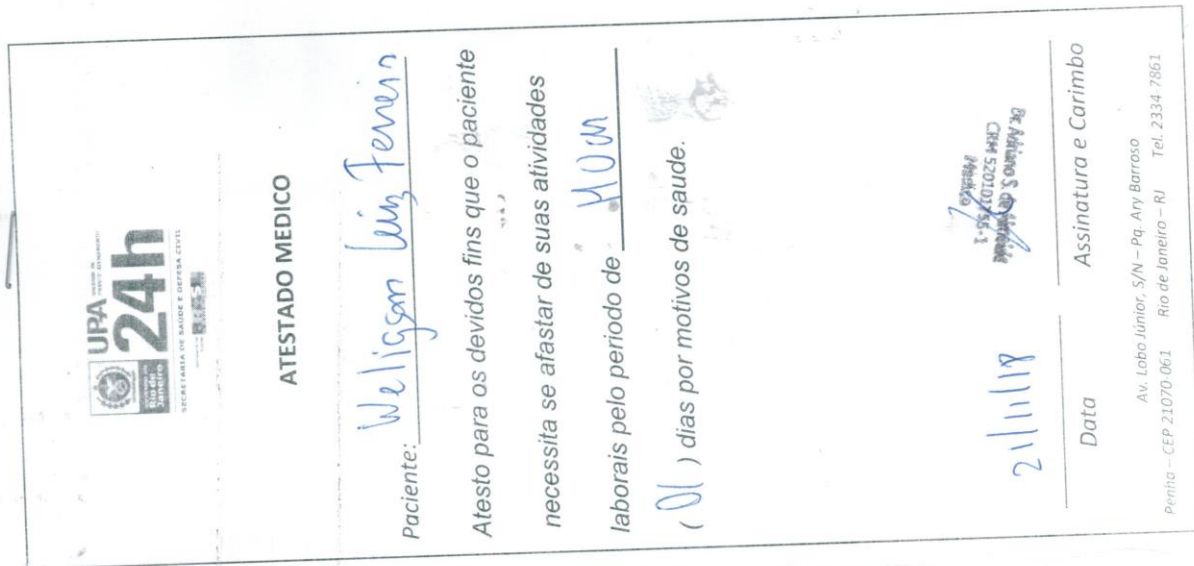 UPA
24h
Rio de
Janeiro
SECRETARIA DE SAÚDE E DEFESA CIVIL
ATESTADO MEDICO
Paciente: Weligson Luiz Ferreira
Atesto para os devidos fins que o paciente
necessita se afastar de suas atividades
laborais pelo periodo de
(01) dias por motivos de saude.
Médico
21/11/18
Data
Assinatura e Carimbo
Av. Lobo Júnior, S/N – Pq. Ary Barroso
Penha – CEP 21070-061 Rio de Janeiro – RJ Tel. 2334-7861